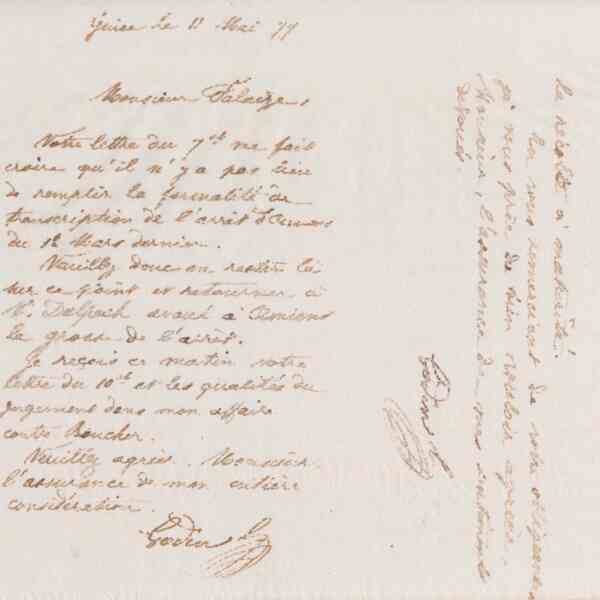 Guise le 11 Mai 77
Monsieur Falaize,
Votre lettre du 7 ct me fait
croire qu'il n'y a pas lieu
de remplir la formalité de
transcription de l'arrêt d'Amiens
du 1er Mars dernier.
Veuillez donc en rester là
sur ce point et retourner à
Mr Delpech avoué à Amiens
la grosse de l'arrêt.
Je reçois ce matin votre
lettre du 10 ct et les qualités du
jugement dans mon affaire
contre Boucher.
Veuillez agréer, Monsieur,
l'assurance de mon entière
considération.
Godin
la récolte à maturité.
En vous remerciant de votre obligeance
je vous prie de bien vouloir agréer,
Monsieur, l'assurance de mes sentiments
dévoués.
Godin